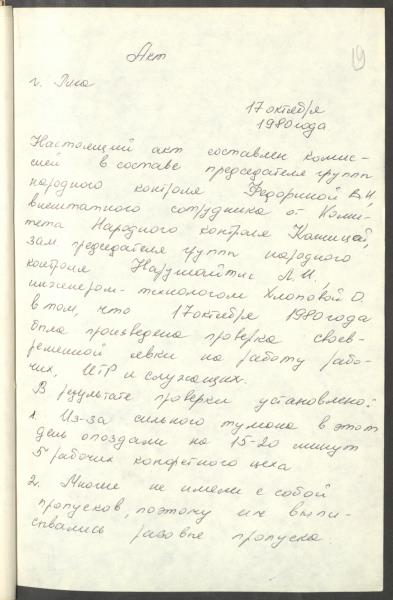 19
Акт
г. Рига
17 октября
1980 года
Настоящий акт составлен комис-
сией в составе председателя группы
народного контроля Федориной В.И,
внештатного сотрудника от Коми-
тета Народного контроля
зам. председателя группы народного
контроля Нарушайтис Л.И,
инженером-технологом Хлоповой О.
в том, что 17 октября 1980 года
была произведена проверка своев-
ременной явки на работу рабо-
чих, ИТР и служащих.
В результате проверки установлено:
1. Из-за сильного тумана в этот
день опоздали на 15-20 минут
5 рабочих конфетного цеха
2. Многие не имели с собой
пропусков, поэтому им выпи-
сывались разовые пропуска.